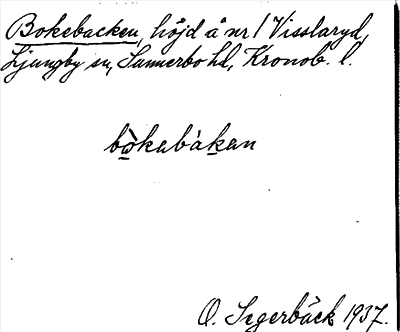 Bokebacken, höjd å nr 1 Visslaryd,
Ljungby sn, Sunnerbo hd, Kronob. l.
bo̱̊̀kabàkan
O. Segerbäck 1937.